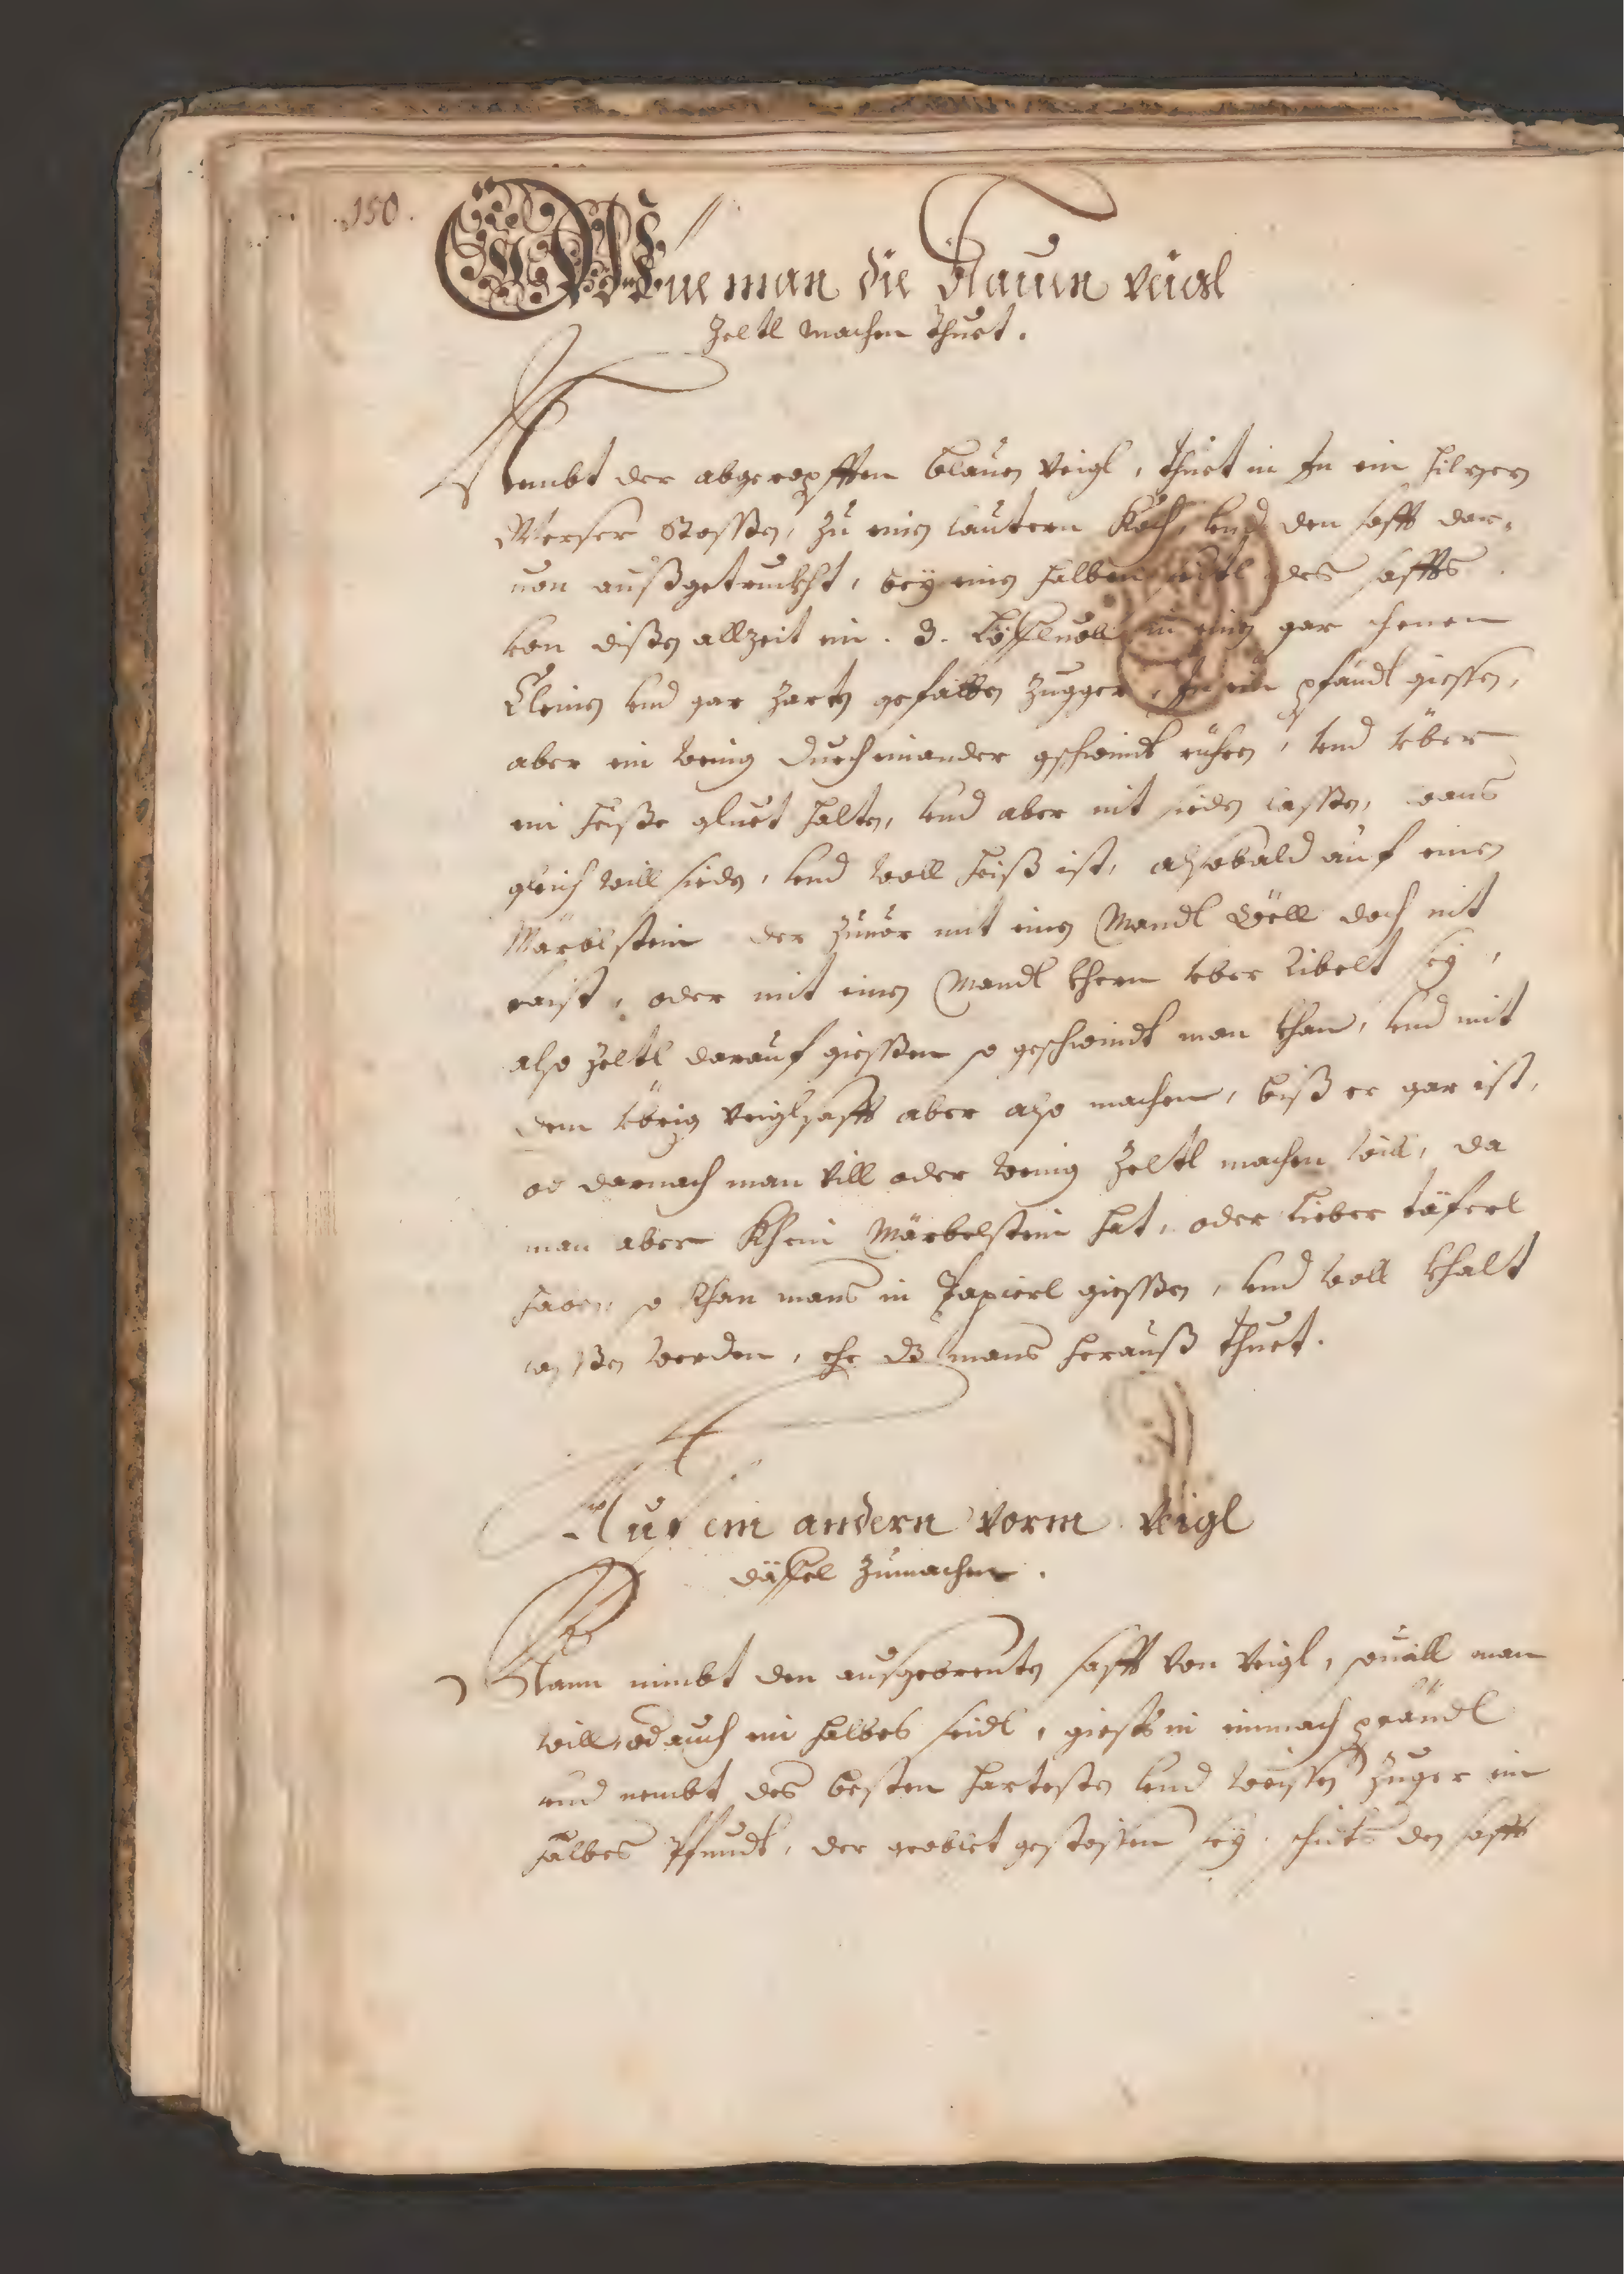 150.
Wie man die Blauen veigl
Zeltl machen thuet.
Nembt der abgeropfften blauen Veigl, thuet in In ein hilzen
Merser Stossen, zu einen lautern Koch, vnd den safft dar-
uon außgetruckht, bey einen halben seitl des saffts
von dißen allzeit ein 3. Löffluoll in einen gar schenen
Kleinen vnd gar zarten gefäätten Zugger, In ein pfändl giessen,
aber ein wenig durcheinander gschwindt rühren, vnd über
ein heiße gluet halten, vnd aber nit sieden lassen, wans
gleich will sieden, vnd woll heiß ist, alsobald auf einen
Märblstein der zuuor mit einen Mandl Öell doch nit
faist, oder mit einen Mandl khern vber Ribelt sey,
also Zeltl darauf giessen so geschwindt man khan, vnd mit
dem vbrig Veiglsafft aber also machen, biß er gar ist,
od darnach man vill oder wenig Zeltl machen will, da
man aber Khein Märbelstein hat, oder Lieber täferl
haben, so khan mans in Papierl giessen, vnd woll khalt
lassen werden, ehe dz mans herauß thuet.
Auf ein andern vorm Veigl
däffel zumachen.
Mann nimbt den außgebrenten safft von Veigl, souill man
will, od auch ein halbes seidl, giests in einmach pfändl
vnd nembt des besten hartesten vnd weissen Zuger ein
halbes Pfundt, der groblet gestossen sey, schüts den safft